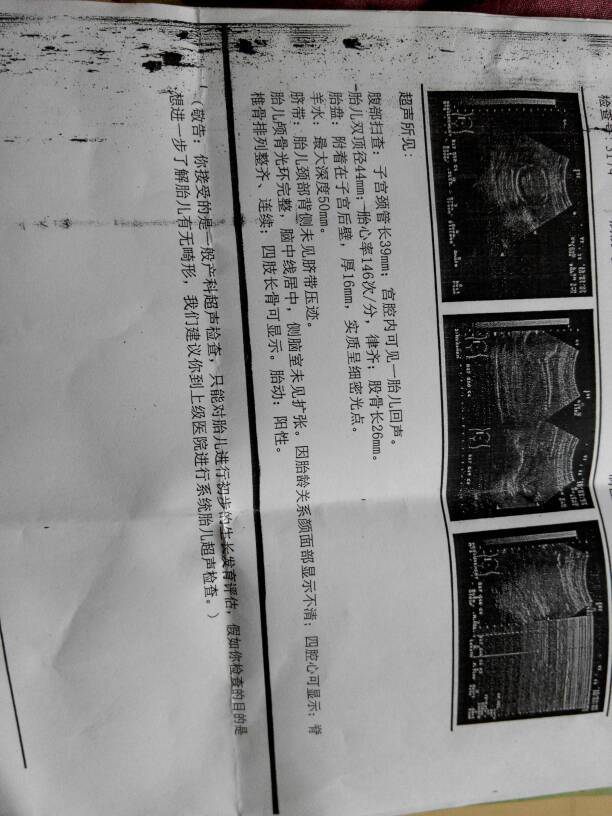 检查
超声所见：
腹部扫查：子宫颈管长39mm；宫腔内可见一胎儿回声。
胎儿双顶径44mm；胎心率146次/分，律齐；股骨长26mm。
胎盘：附着在子宫后壁，厚16mm，实质呈细密光点。
羊水：最大深度50mm。
脐带：胎儿颈部背侧未见脐带压迹。
胎儿颅骨光环完整，脑中线居中，侧脑室未见扩张。因胎龄关系颜面部显示不清；四腔心可显示；脊
椎骨排列整齐、连续；四肢长骨可显示。胎动：阳性。
（敬告：你接受的是一般产科超声检查，只能对胎儿进行初步的生长发育评估，假如你检查的目的是
想进一步了解胎儿有无畸形，我们建议你到上级医院进行系统胎儿超声检查。）